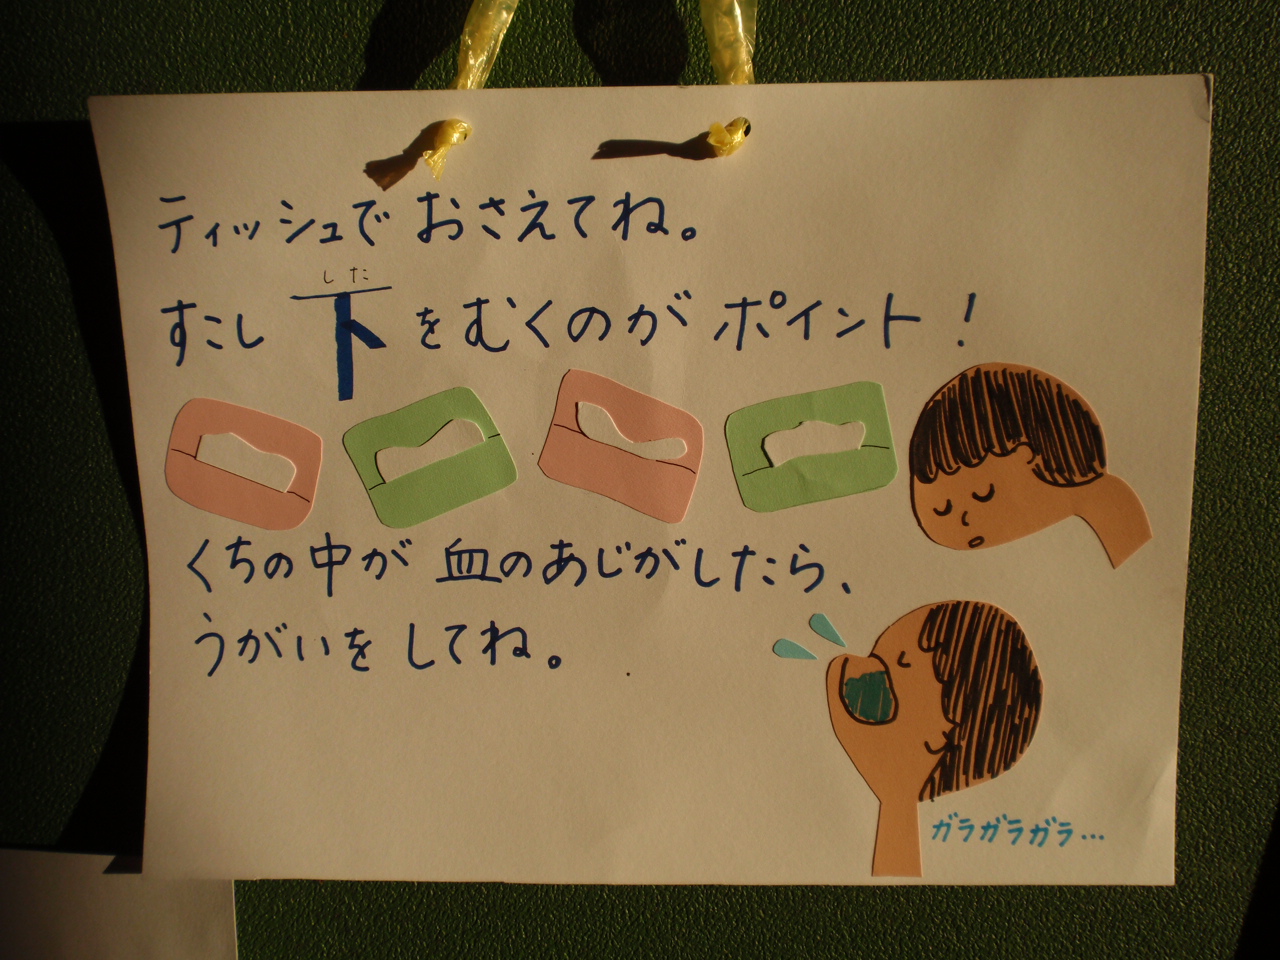 ティッシュで おさえてね。
した
すこし 下 をむくのが ポイント!
くちの中が 血のあじがしたら、
うがいを してね。
ガラガラガラ…